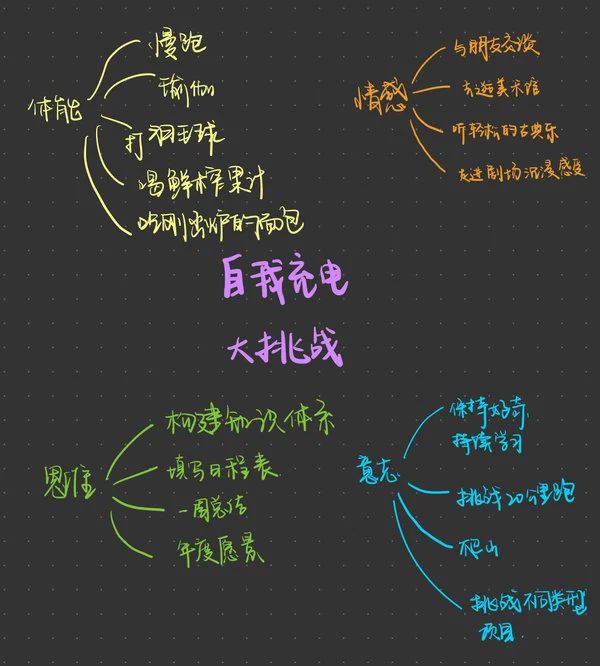 体能
慢跑
瑜伽
打羽毛球
喝鲜榨果汁
吃刚出炉的面包
情感
与朋友交谈
去逛美术馆
听轻松的古典乐
走进剧场沉浸感受
自我充电
大挑战
思维
构建知识体系
填写日程表
一周总结
年度愿景
意志
保持好奇
持续学习
挑战20公里跑
爬山
挑战不同类型
项目